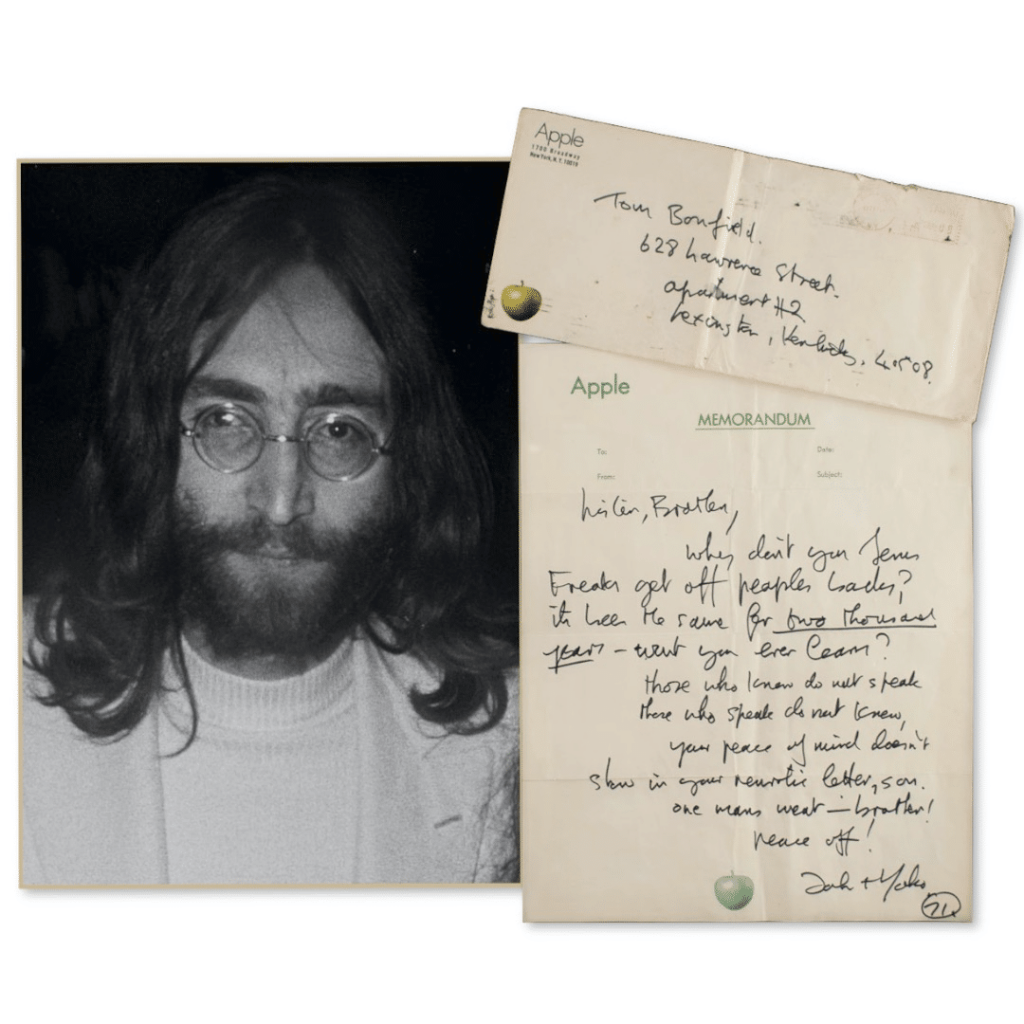 Apple
1700 Broadway
New York, N.Y. 10019
Tom Bonfield.
628 Lawrence Street.
apartment #2
Lexington, Kentucky. 40508.
Apple
MEMORANDUM
To:
Date:
From:
Subject:
Listen, Brother,
why don't you Jesus
Freaks get off peoples backs?
its been the same for two thousand
years - won't you ever learn?
Those who know do not speak
Those who speak do not know,
your peace of mind doesn't
show in your neurotic letter, son.
one mans meat — brother!
peace off!
John + Yoko
71